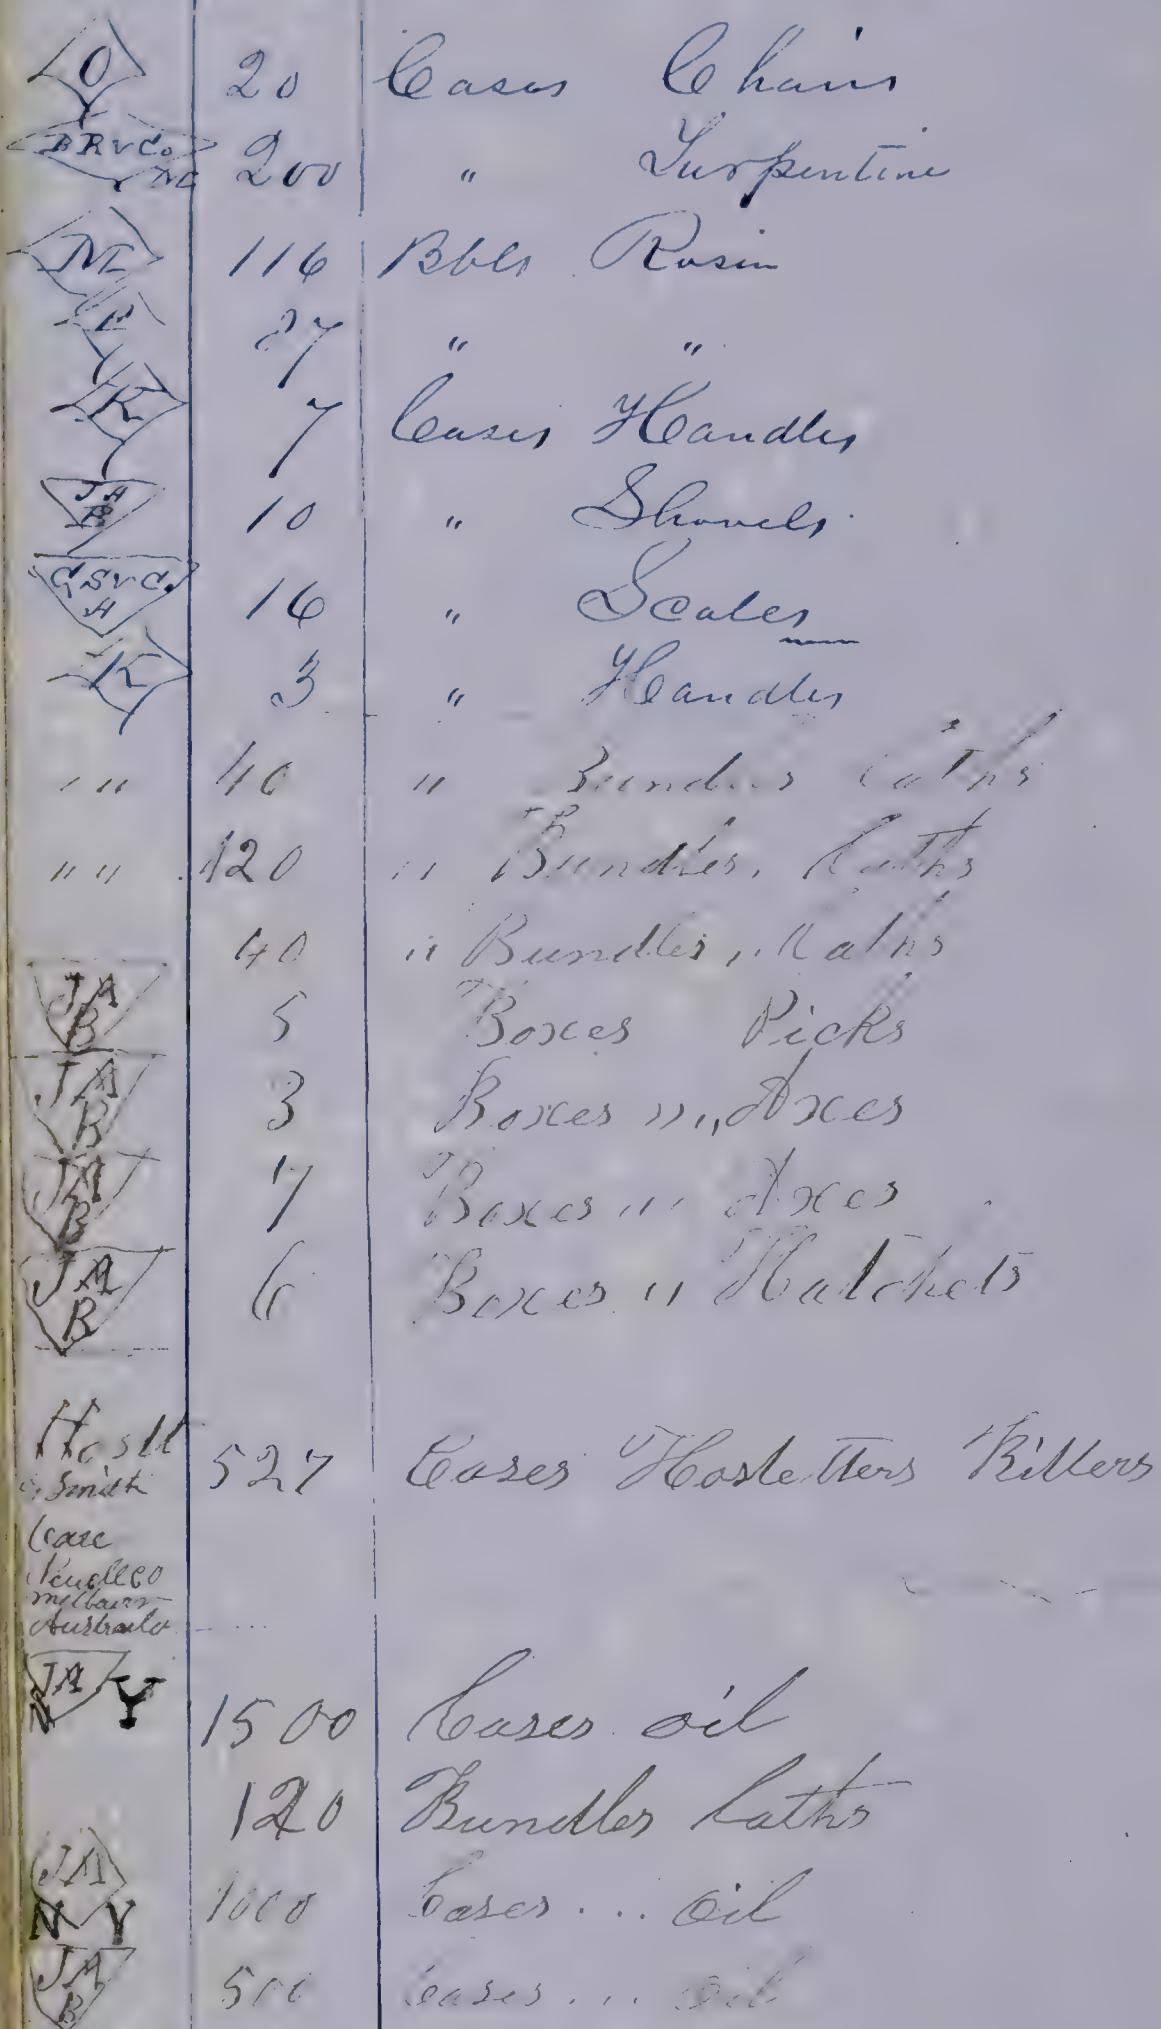 O 20 Cases Chairs
B R V Co 200 " Turpentine
M 116 Bbls Rosin
27 " "
K 7 Cases Handles
J A B 10 " Shovels
G S V C. H 16 " Scales
K 3 " Handles
" " 40 " Bundles Laths
" " 120 " Bundles, Laths
40 " Bundles, " Laths
J A B 5 Boxes Picks
J A B 3 Boxes " " Axes
J A B 7 Boxes " " Axes
J A B 6 Boxes " Hatchets
Hostt
& Smith 527 Cases Hostetters Bitters
Care
Newell Co
Melbourn
Australa
J A N Y 1500 Cases oil
120 Bundles Laths
J A N Y 1000 Cases ... Oil
J A B 500 Cases ... Oil